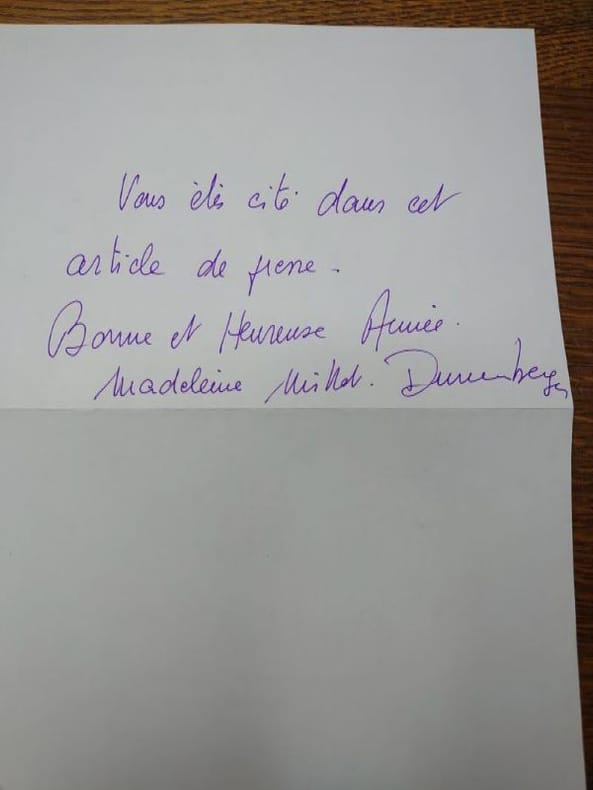 Vous êtes cité dans cet
article de presse.
Bonne et Heureuse Année.
Madeleine Millot. Durrenberger